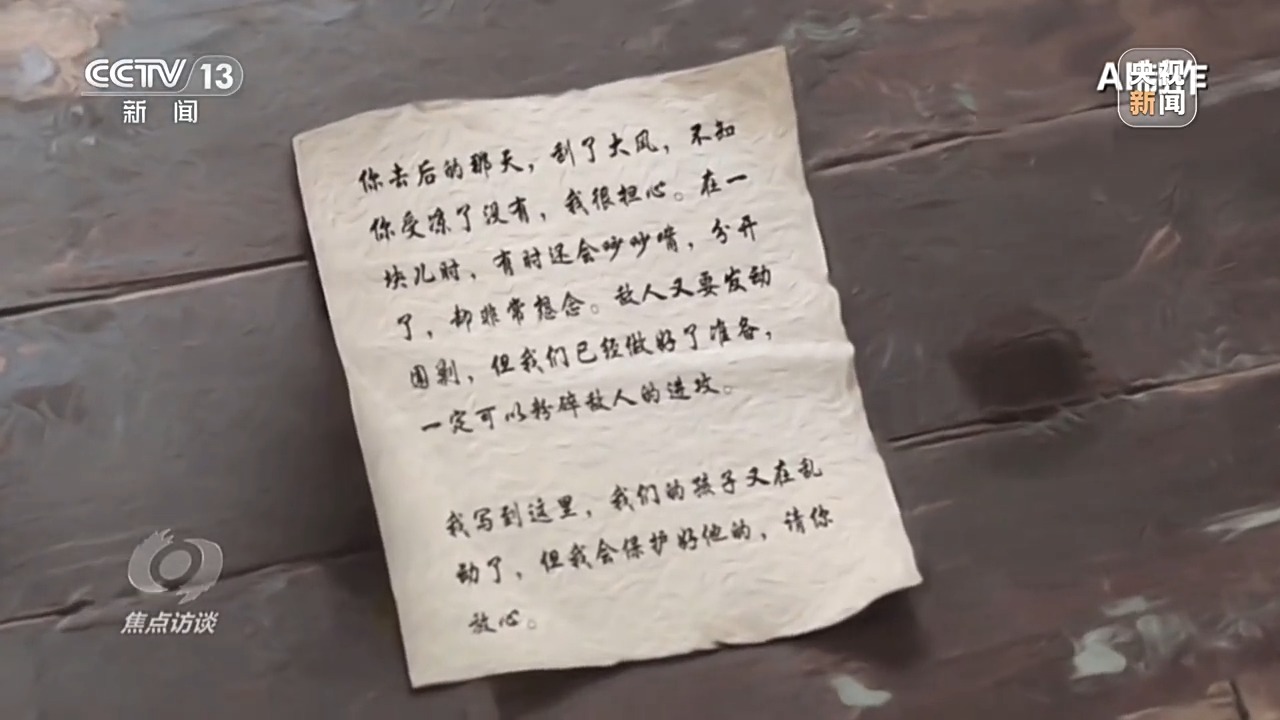 CCTV 13
新闻
央视
新闻
你去后的那天，刮了大风，不知
你受冻了没有，我很担心。在一
块儿时，有时还会吵吵嘴，分开
了，却非常想念。敌人又要发动
围剿，但我们已经做好了准备，
一定可以粉碎敌人的进攻。
我写到这里，我们的孩子又在乱
动了，但我会保护好他的，请你
放心。
焦点访谈